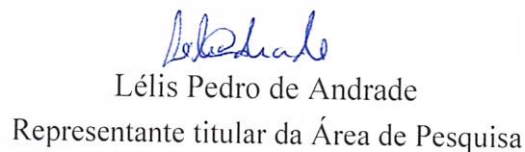 Lélis Pedro de Andrade
Representante titular da Área de Pesquisa